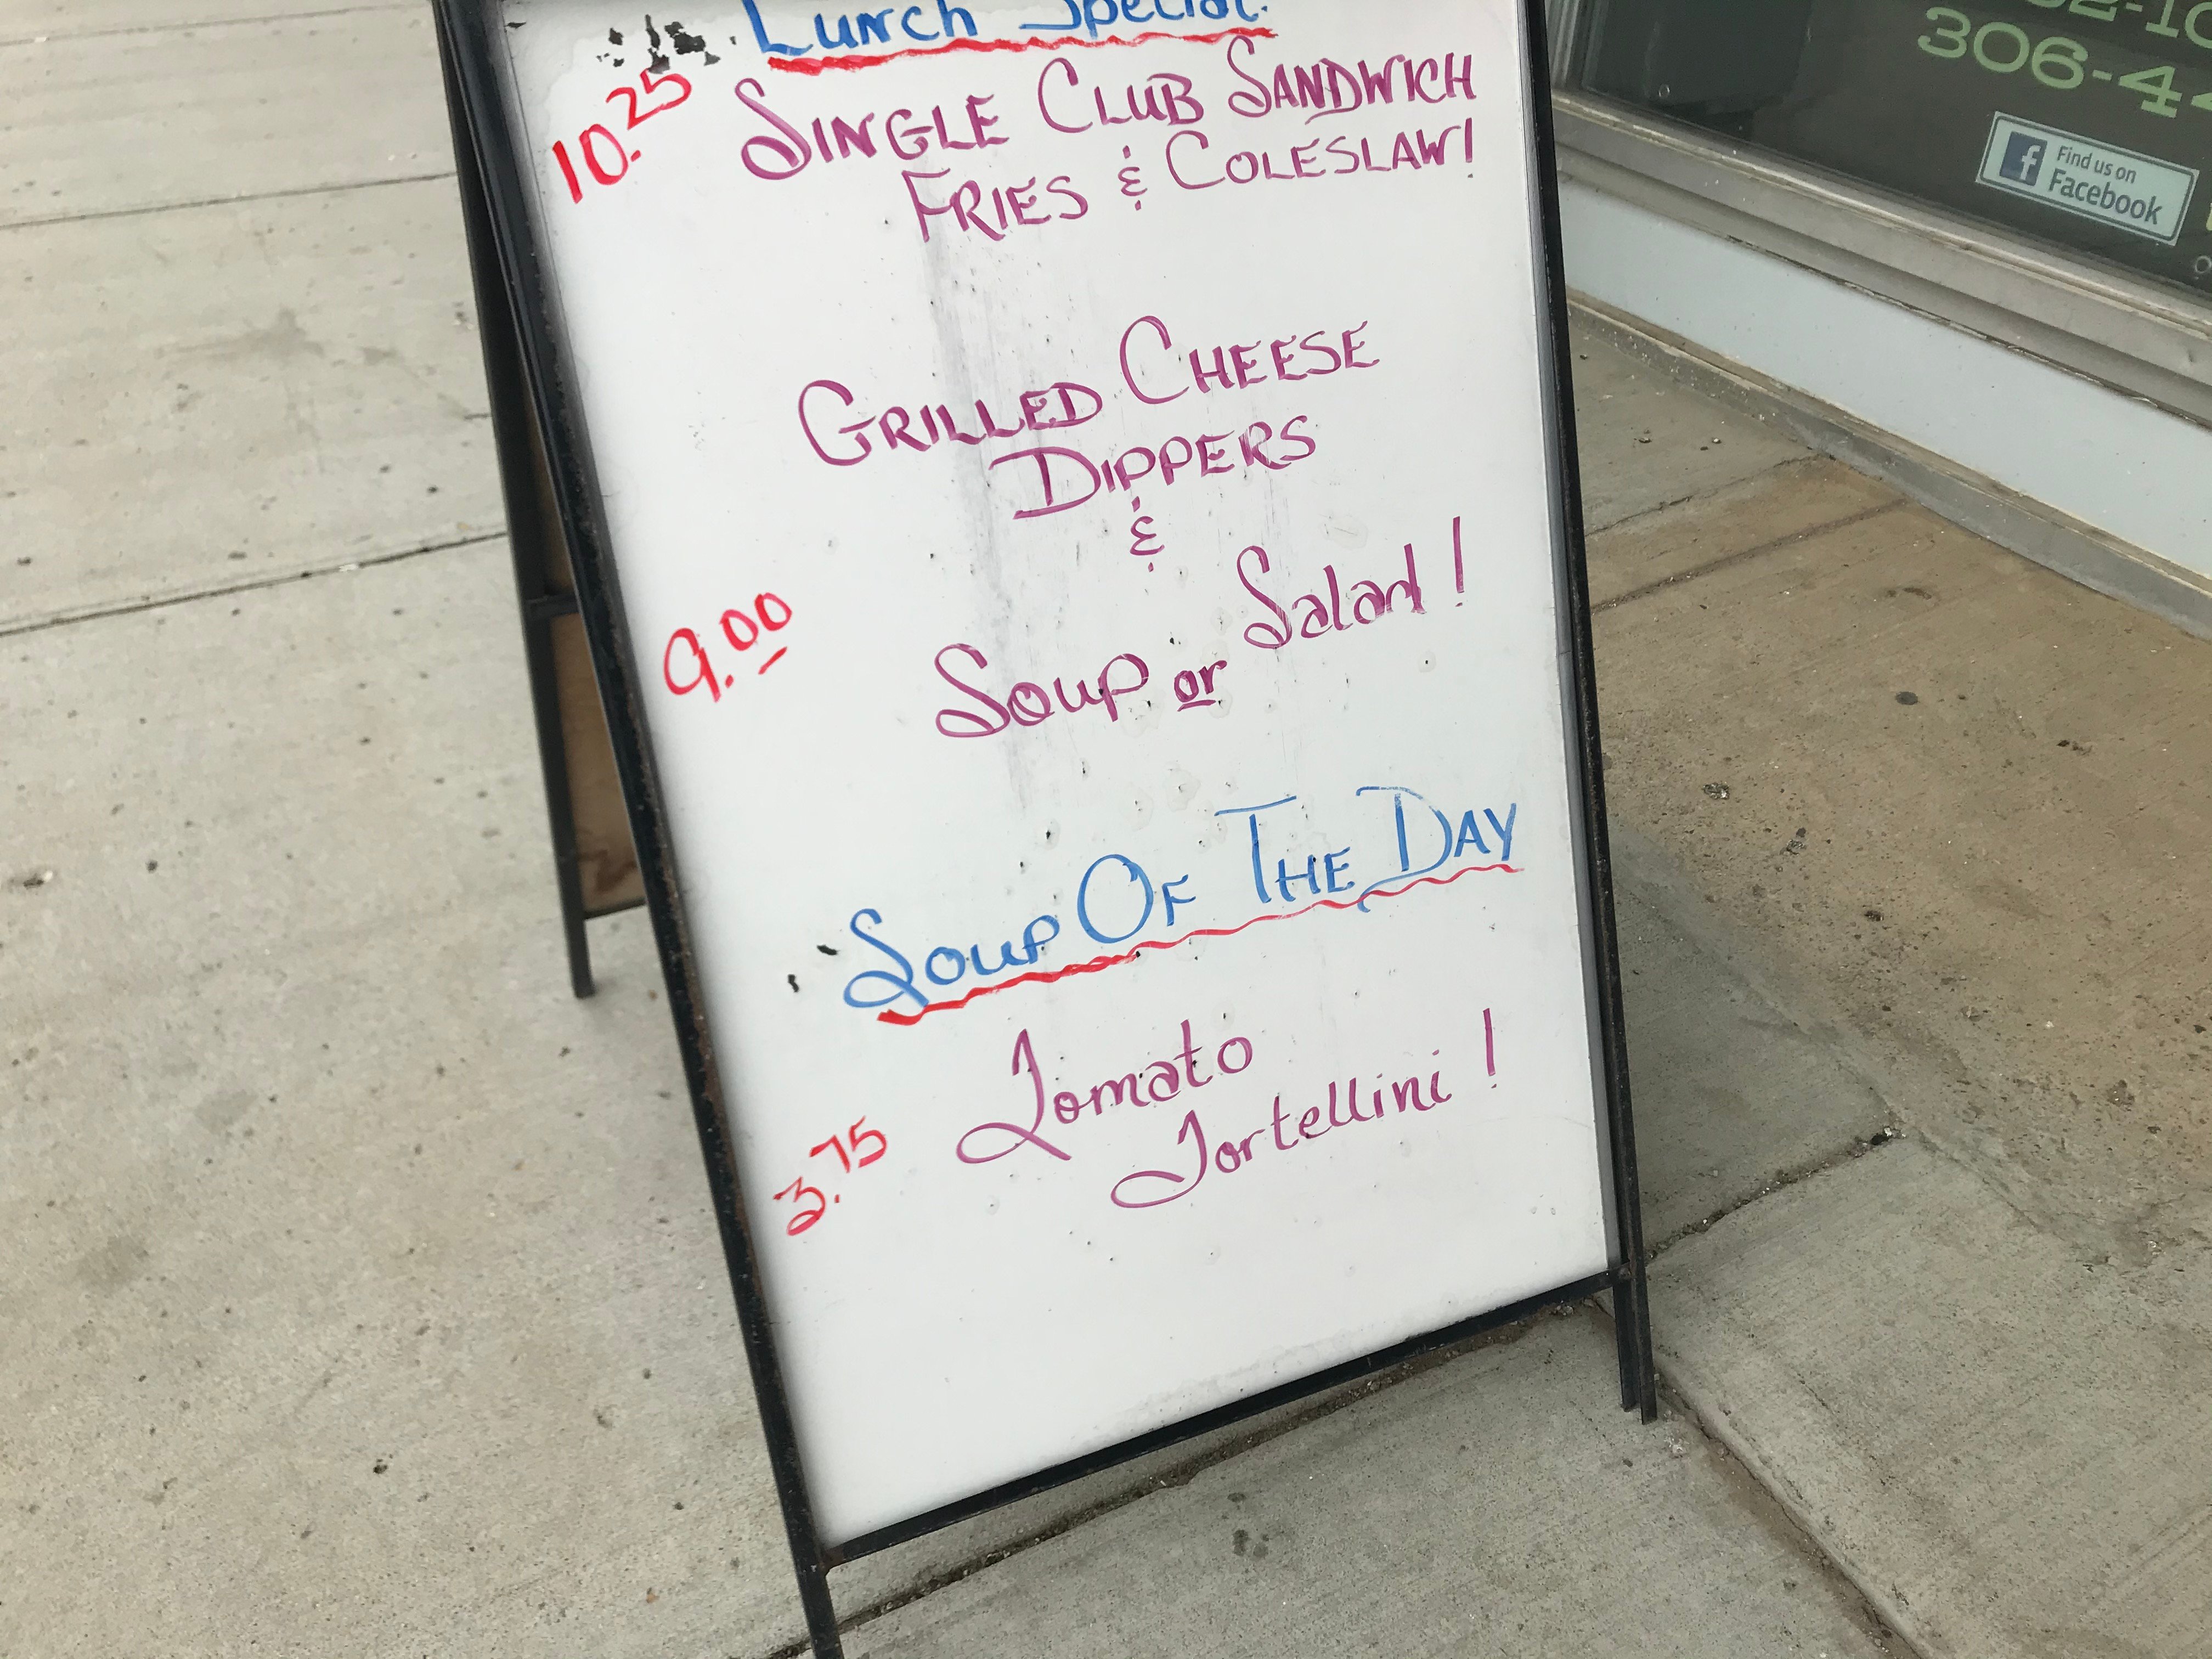 Lunch Special.
10.25 SINGLE CLUB SANDWICH
FRIES & COLESLAW!
GRILLED CHEESE
DIPPERS
&
9.00 Soup or Salad!
Soup OF THE DAY
Tomato
3.75 Tortellini!
306-4
Find us on
Facebook